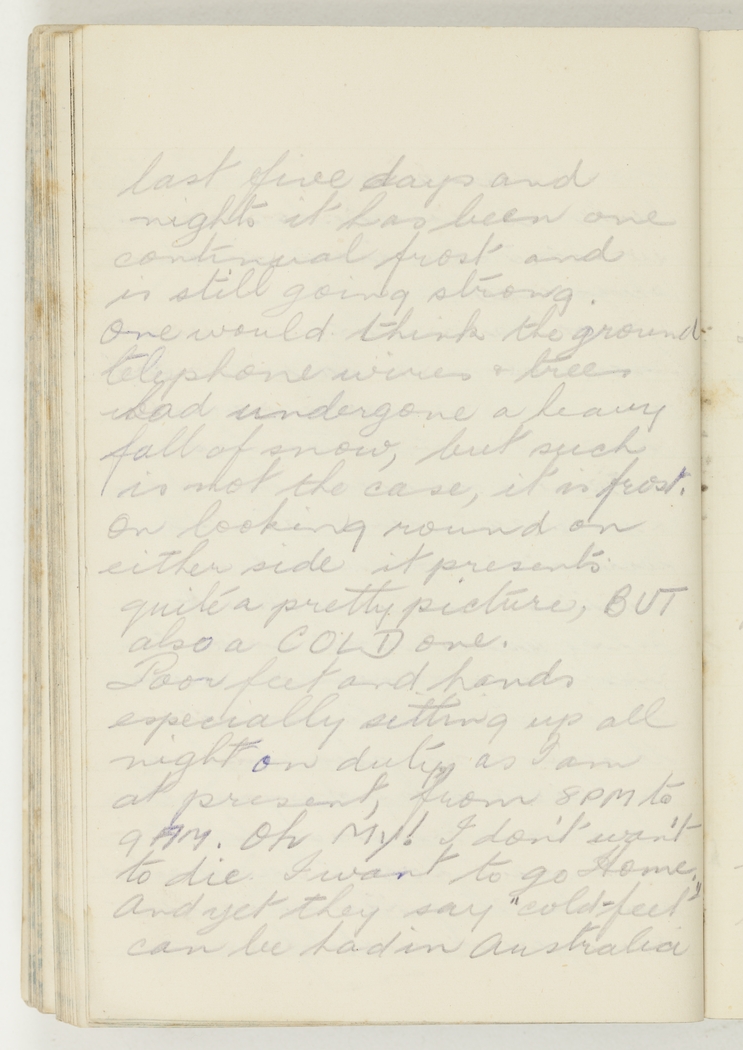 last five days and
nights it has been one
continual frost and
is still going strong.
One would think the ground
telephone wires & trees
had undergone a heavy
fall of snow, but such
is not the case, it is frost.
On looking round on
either side it presents
quite a pretty picture, BUT
also a COLD one.
Poor feet and hands
especially setting up all
night on duty, as I am
at present, from 8PM to
9AM. Oh My! I don't want
to die I want to go Home.
And yet they say "cold-feet"
can be had in Australia